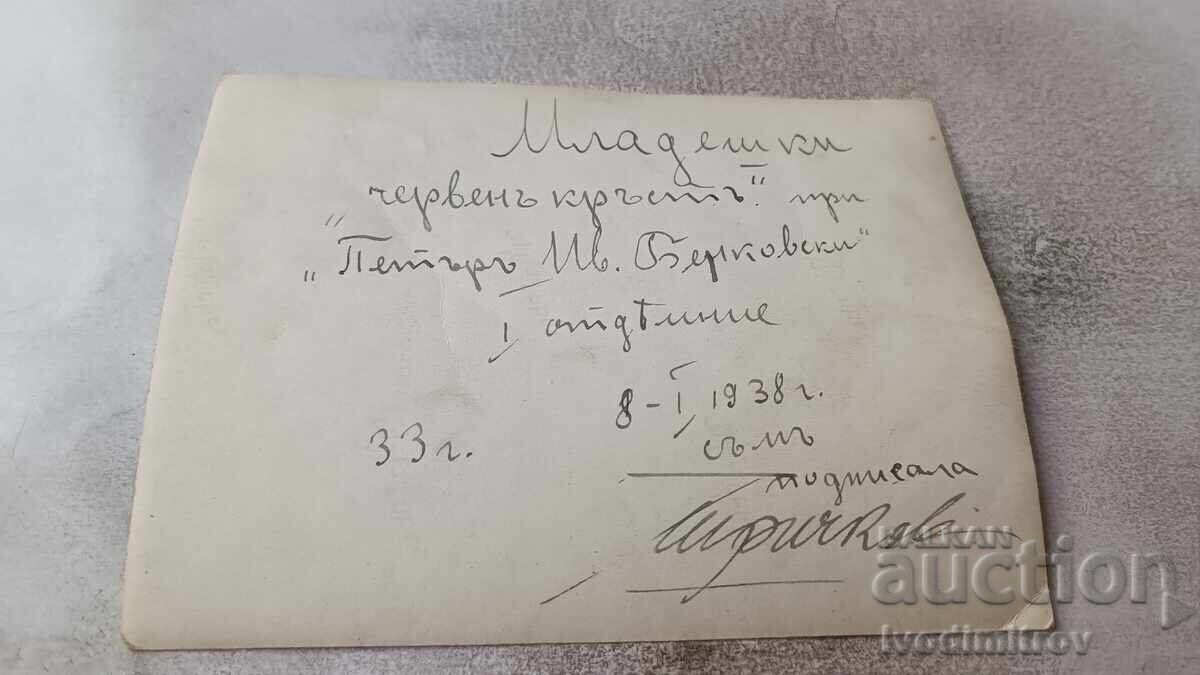 Младешки
„червенъ кръстъ“ при
„Петъръ Ив. Берковски“
I отдѣлние
8-I 1938 г.
33 г.
съмъ
подписала
BALKAN
auction
Ivodimitrov